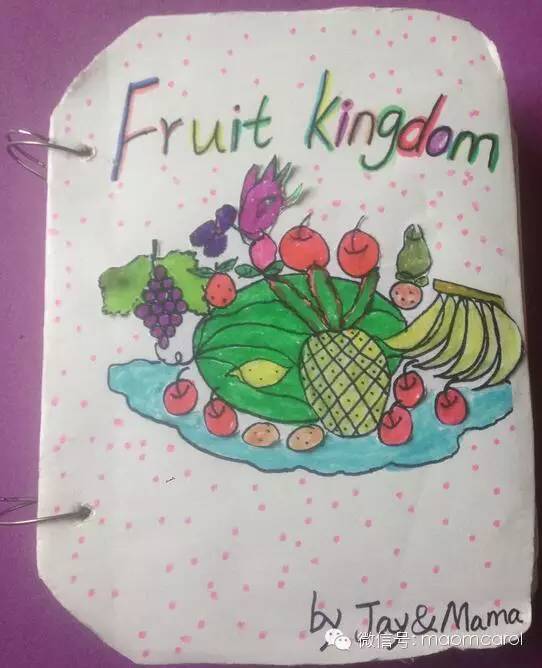 Fruit kingdom
by Jay&Mama
微信号: maomcarol